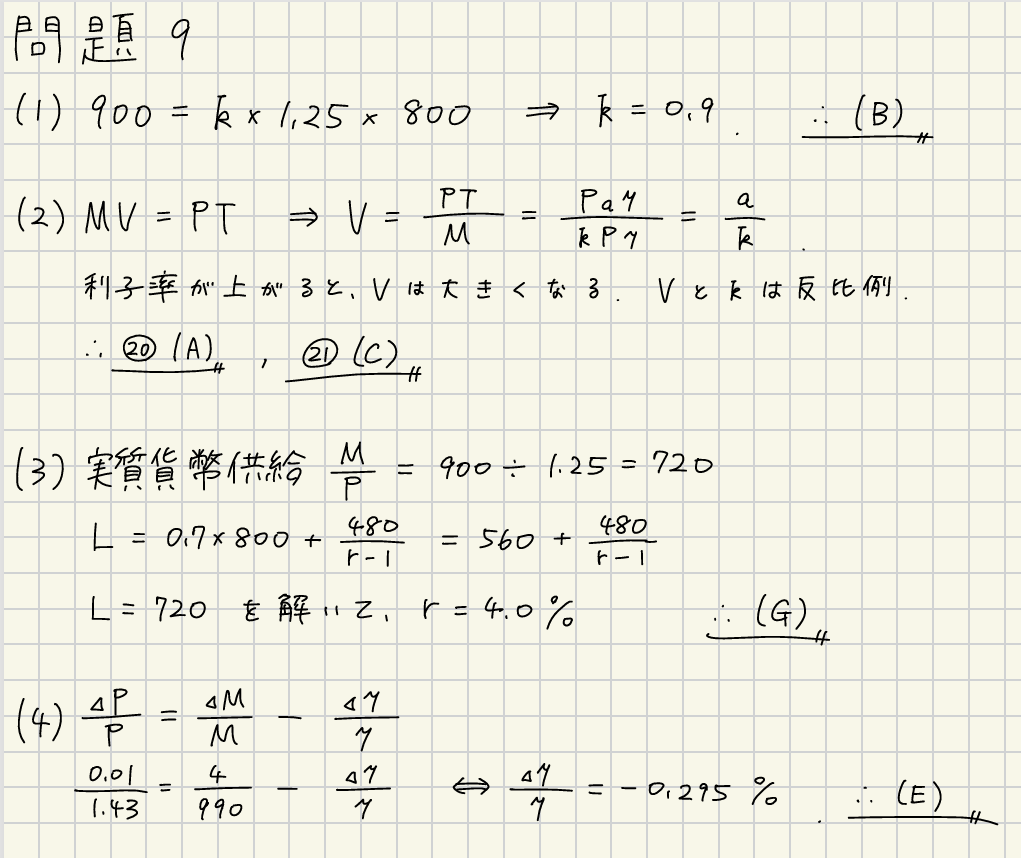 問題 9
(1) 900 = k × 1.25 × 800 ⇒ k = 0.9. ∴ (B)
(2) MV = PT ⇒ V = PT/M = Pay/kPy = a/k.
利子率が上がると、Vは大きくなる. Vとkは反比例.
∴ ⑳ (A), ㉑ (C)
(3) 実質貨幣供給 M/P = 900 ÷ 1.25 = 720
L = 0.7×800 + 480/(r-1) = 560 + 480/(r-1)
L = 720 を解いて、r = 4.0 % ∴ (G)
(4) ΔP/P = ΔM/M - Δy/y
0.01/1.43 = 4/990 - Δy/y ⇔ Δy/y = -0.295 %. ∴ (E)